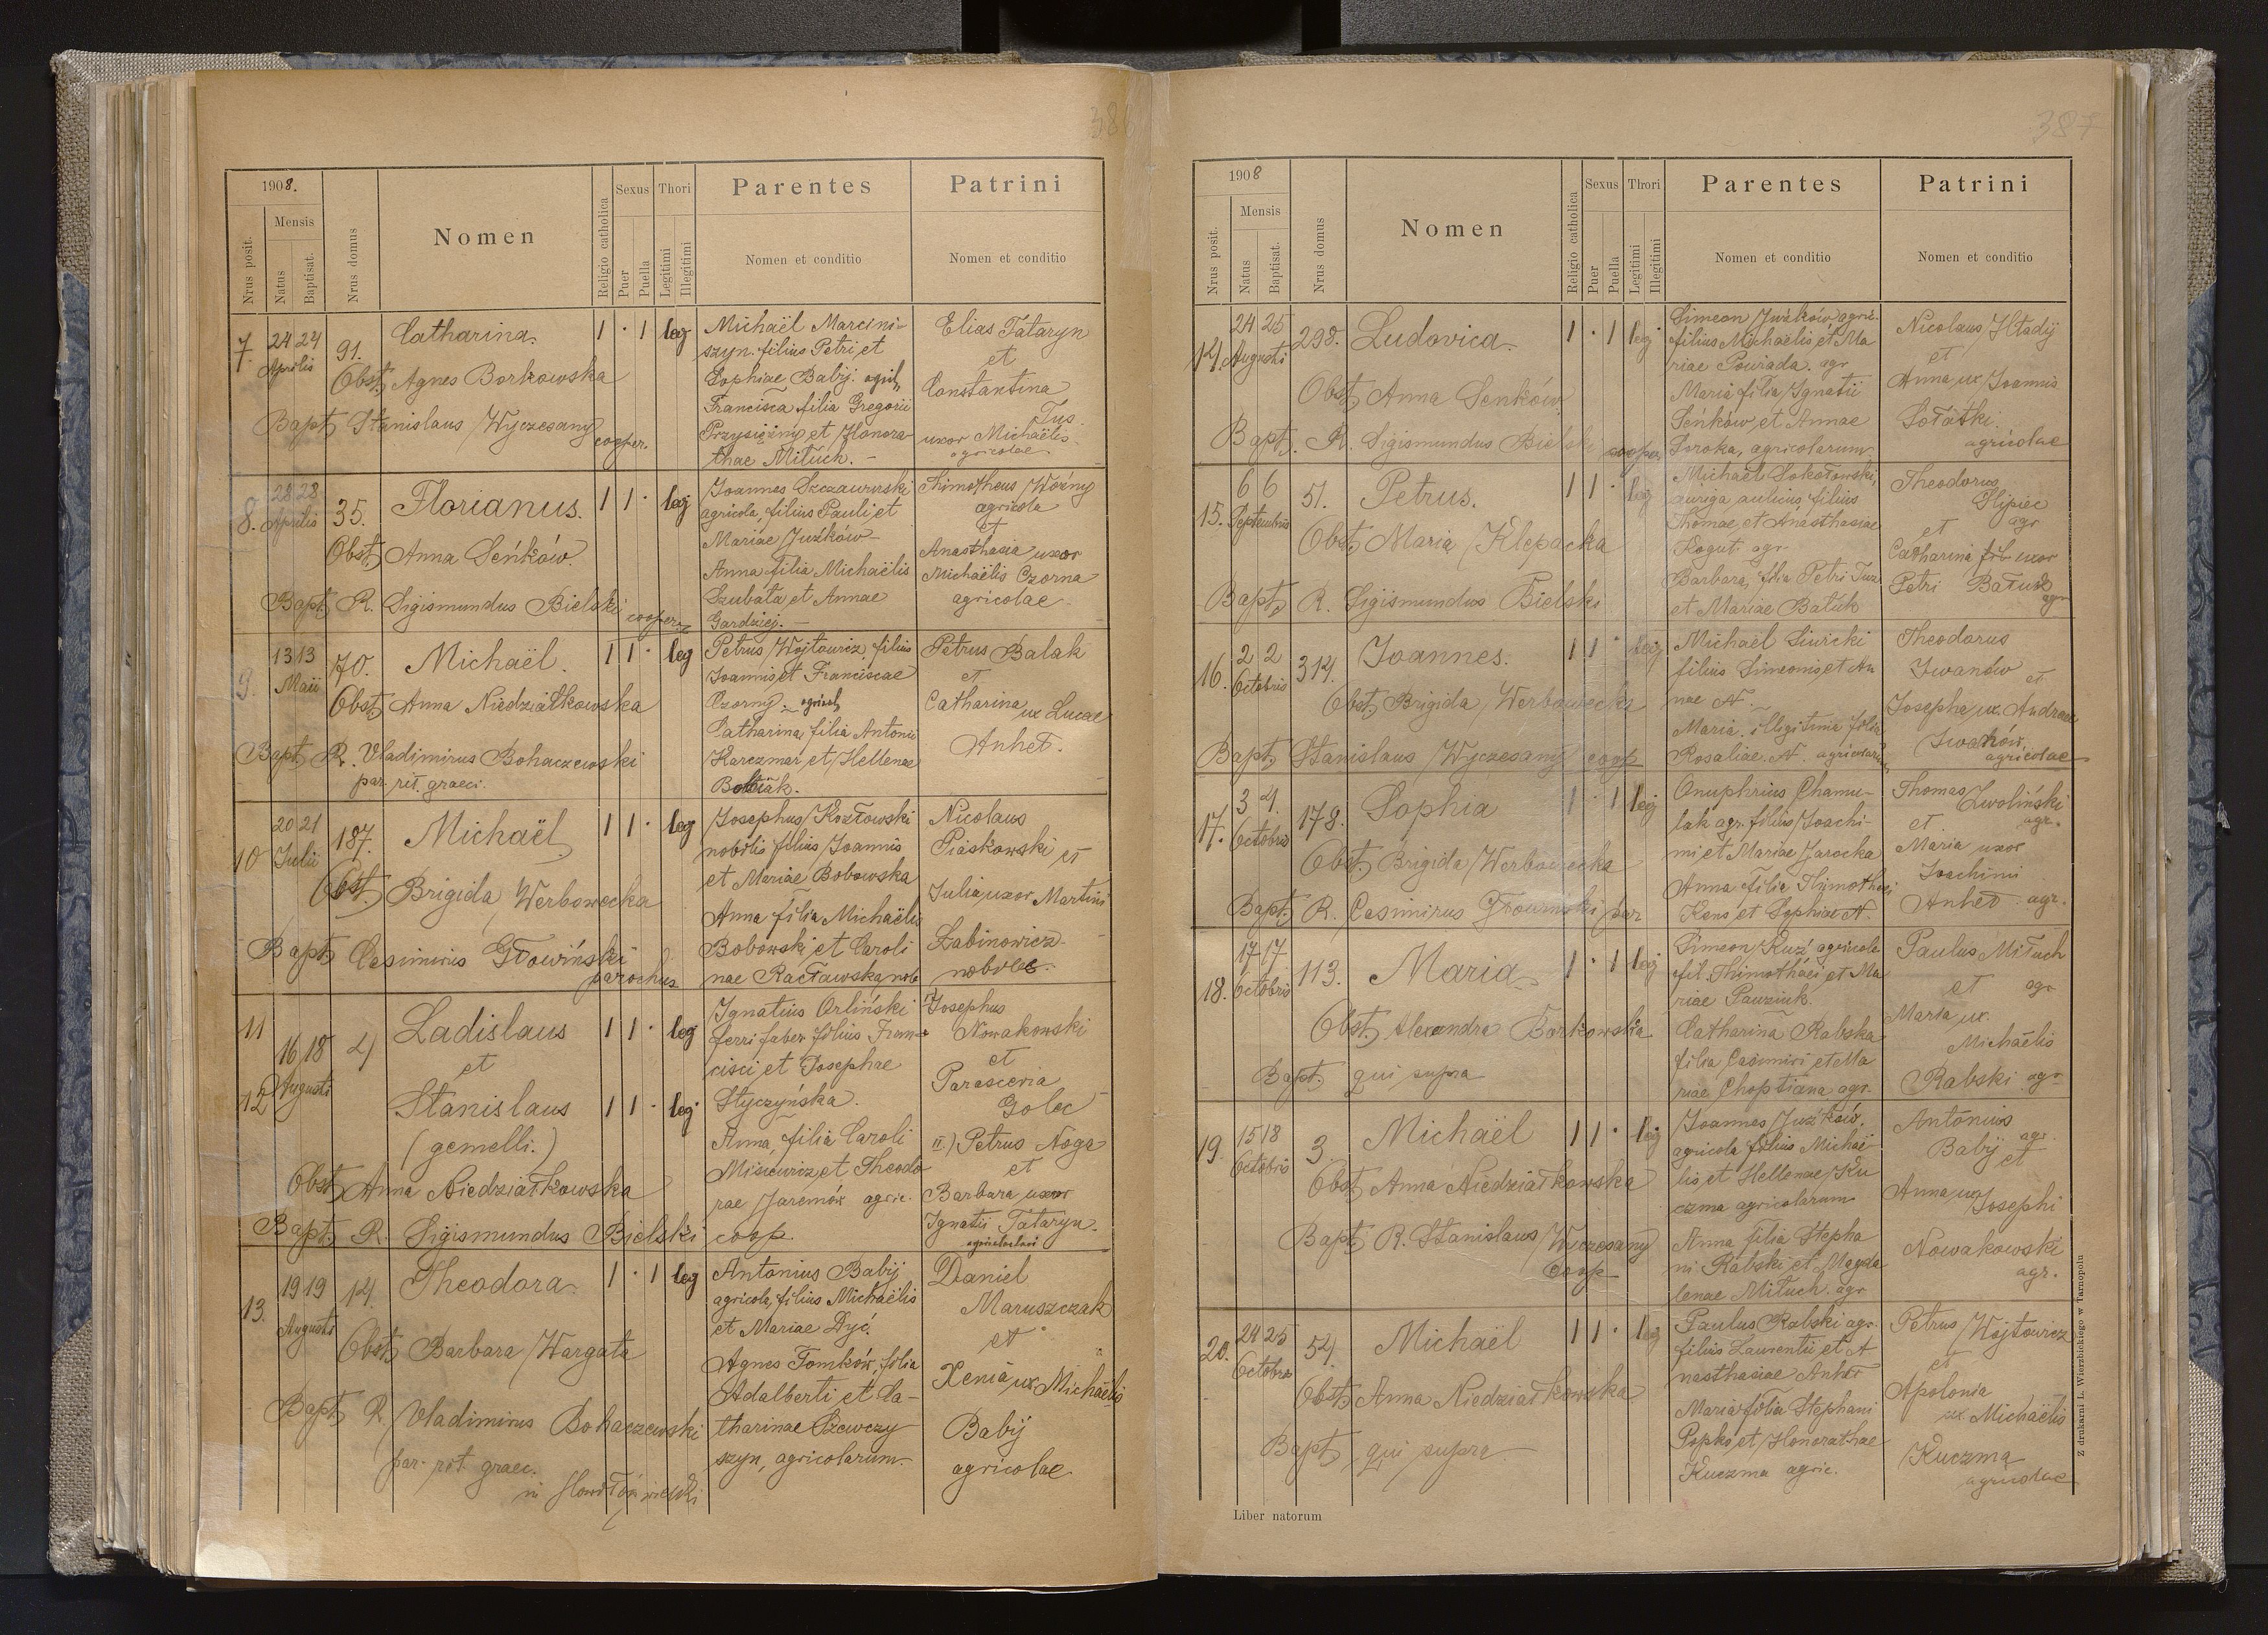 386
1908.
Mensis
Nrus posit.
Natus
Baptisat.
Nrus domus
Nomen
Religio catholica
Sexus
Puer
Puella
Thori
Legitimi
Illegitimi
Parentes
Nomen et conditio
Patrini
Nomen et conditio
7.
24 24
Aprilis
91.
Catharina.
1 · 1 leg
Obst. Agnes Borkowska
Bapt. Stanislaus Wyczesany
cooper.
Michaël Marcini-
szyn. filius Petri et
Sophiae Babij. agricol.
Francisca filia Gregorii
Przysiężny et Honora
thae Mituch. -
Elias Tataryn
et
Constantina
Tus.
uxor Michaëlis
agricolae
8.
28 28
Aprilis
35.
Florianus.
1 1 · leg
Obst. Anna Seńków.
Bapt. R. Sigismundus Bielski
cooper.
Joannes Szczawurski
agricola, filius Pauli et
Mariae Juźków -
Anna filia Michaëlis
Szubata et Annae
Gardziej. -
Thimotheus Woźny
agricola
et
Anasthasia uxor
Michaëlis Czorna
agricolae
9.
13 13
Maii
70.
Michaël.
1 1 · leg
Obst. Anna Niedziałkowska
Bapt. R. Vladimirus Bohaczewski
par. rit. graeci.
Petrus Wojtowicz, filius
Joannis et Franciscae
Czorny. - agricol.
Catharina, filia Antonii
Karczmar et Hellenae
Petrus Balak
et
Catharina
ux Lucae
Anhel.
10
20 21
Julii
187.
Michaël
1 1 · leg
Obst. Brigida Werbowecka
Bapt. Casimirus Głowiński
parochus
Josephus Kozłowski
nobilis filius Joannis
et Mariae Bobowska
Anna filia Michaëlis
Bobowski et Caroli
nae Racławska, nob
Nicolaus
Piaskowski et
Julia uxor Martini
Łabinowicz
nobiles.
11
12
16 18
Augusti
4
Ladislaus
et
Stanislaus
(gemelli.)
1 1 · leg
1 1 · leg
Obst. Anna Niedziałkowska
Bapt. R. Sigismundus Bielski coop.
Ignatius Orliński
ferri faber filius Fran-
cisci et Josephae
Styczyńska.
Anna, filia Caroli
Misiewicz et Theodo
rae Jaremów agric.
Josephus
Nowakowski
et
Parascevia
Golec
II) Petrus Noga
et
Barbara uxor
Ignatii Tataryn.
13.
19 19
Augusti
14.
Theodora
1 · 1 leg
Obst. Barbara Wargata
Bapt. R. Vladimirus Bohaczewski
par. rit. graec.
Antonius Babij
agricola, filius Michaëlis
et Mariae Dyć.
Agnes Tomków, filia
Adalberti et Ca-
tharinae Szewczy
szyn, agricolarum.
Daniel
Maruszczak
et
Xenia ux Michaëlis
Babij
agricolae
387
1908
Mensis
Nrus posit.
Natus
Baptisat.
Nrus domus
Nomen
Religio catholica
Sexus
Puer
Puella
Thori
Legitimi
Illegitimi
Parentes
Nomen et conditio
Patrini
Nomen et conditio
14.
24 25
Augusti
298.
Ludovica.
1 · 1 leg
Obst. Anna Senków
Bapt. R. Sigismundus Bielski cooper.
Simeon Juzków agric.
filius Michaëlis et Ma
riae Powrada. agr
Maria filia Ignatii
Seńków et Annae
Soroka, agricolarum
Nicolaus Hładij
et
Anna ux Joannis
Sołatki.
agricolae
15.
6 6
Septembris
51.
Petrus.
1 1 · leg
Obst. Maria Klepacka
Bapt. R. Sigismundus Bielski
Michaël Sokołowski,
auriga aulicus, filius
Thomae et Anasthasiae
Kogut agr
Barbara, filia Petri Tuz
et Mariae Batuk
Theodorus
Slipiec
agr
et
Catharina uxor
Petri
agr
16.
2 2
Octobris
314.
Joannes.
1 1 · leg
Obst. Brigida Werbowecka
Bapt. Stanislaus Wyczesany coop
Michaël Siwicki
filius Simeonis et An
nae N.
Maria. illegitima filia
Rosaliae N. agricolarum
Theodorus
Iwanów et
Josepha ux. Andreae
Iwanów,
agricolae
17.
3 4.
Octobris
178.
Sophia
1 · 1 leg
Obst. Brigida Werbowecka
Bapt. R. Casimirus Głowiński par
Onuphrius Chamu-
lak agr. filius Joachi-
mi et Mariae Jarocka
Anna filia Thimothei
Kens et Sophiae N.
Thomas Zwoliński
et agr.
Maria uxor
Joachimi
Anhel agr.
18.
17 17
Octobris
113.
Maria
1 · 1 leg
Obst. Alexandra Borkowska
Bapt. qui supra
Simeon Kuź agricola
fil. Thimothaei et Ma
riae Pawziuk.
Catharina Rabska
filia Casimiri et Ma
riae Choptiana agr.
Paulus Mituch
et agr
Maria ux.
Michaëlis
Rabski agr
19.
15 18
Octobris
3.
Michaël
1 1 · leg
Obst. Anna Niedziałkowska
Bapt. R. Stanislaus Wyczesany
coop
Joannes Juzków,
agricola filius Michaë
lis et Hellenae Ku
czma agricolarum
Anna filia Stepha
ni Rabski et Magda
lenae Mituch. agr
Antonius
Babij agr
et
Anna ux Josephi
Nowakowski
agr.
20.
24 25
Octobris
54.
Michaël
1 1 · leg
Obst. Anna Niedziałkowska
Bapt. qui supra
Paulus Rabski agr.
filius Laurentii et A
nasthasiae Anhel
Maria filia Stephani
Popko et Honorathae
Kuczma agric.
Petrus Wojtowicz
et
Apolonia
ux Michaëlis
Kuczma
agricolae
Liber natorum
Z drukarni L. Wierzbickiego w Tarnopolu